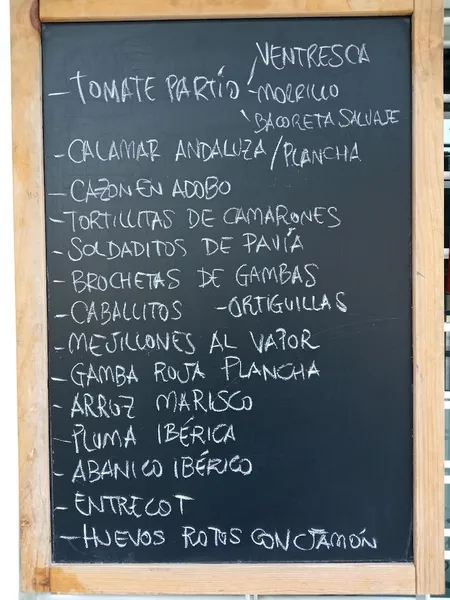 VENTRESCA
- TOMATE PARTÍO - MORRILLO
BACORETA SALVAJE
- CALAMAR ANDALUZA / PLANCHA
- CAZON EN ADOBO
- TORTILLITAS DE CAMARONES
- SOLDADITOS DE PAVÍA
- BROCHETAS DE GAMBAS
- CABALLITOS - ORTIGUILLAS
- MEJILLONES AL VAPOR
- GAMBA ROJA PLANCHA
- ARROZ MARISCO
- PLUMA IBÉRICA
- ABANICO IBÉRICO
- ENTRECOT
- HUEVOS ROTOS CON JAMÓN